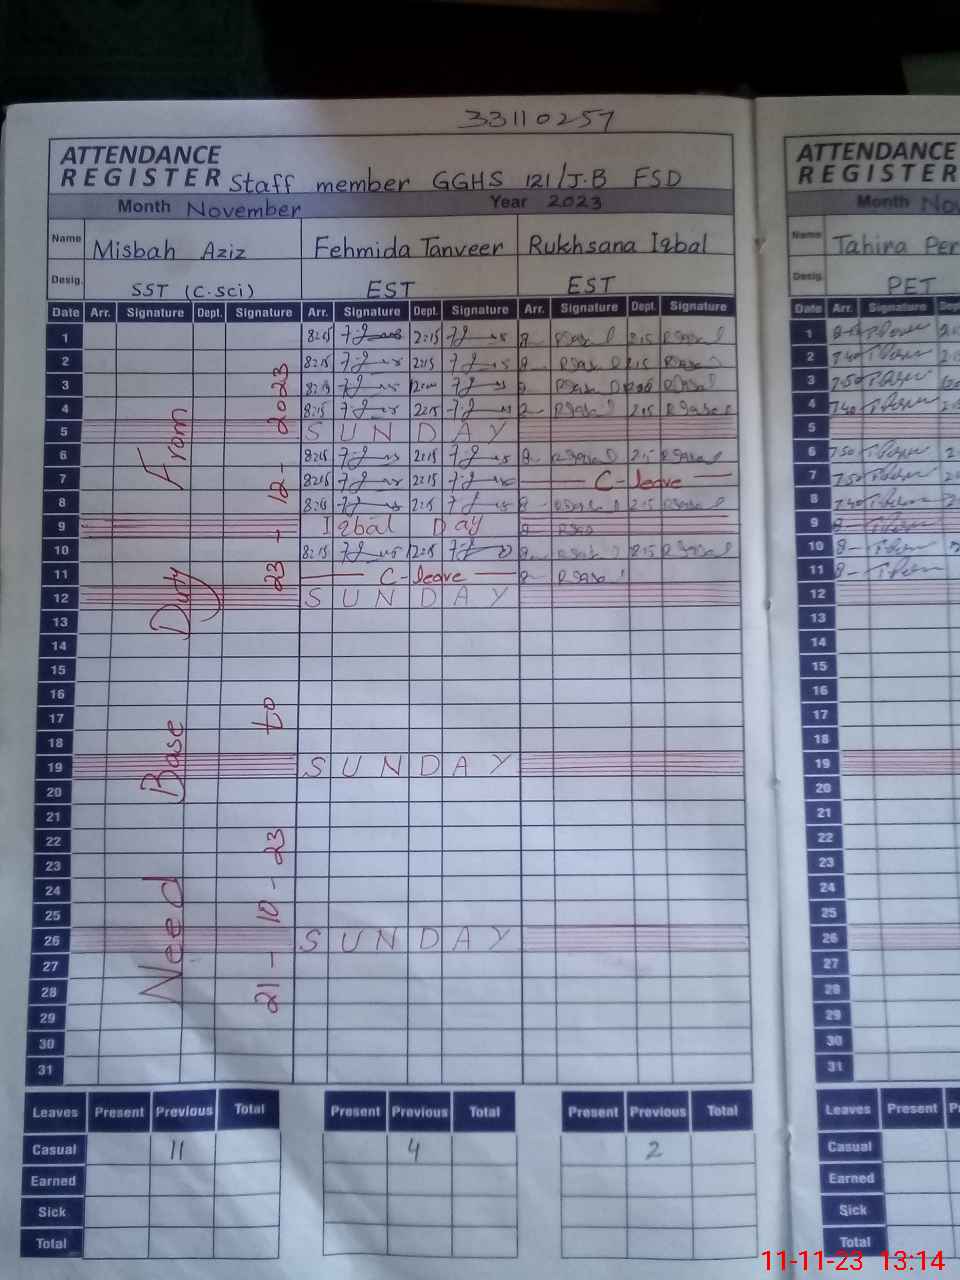 33110257
ATTENDANCE
REGISTER Staff member GGHS 121/J.B FSD
Month November Year 2023
Name Misbah Aziz Fehmida Tanveer Rukhsana Iqbal
Desig. SST (C.sci) EST EST
Date Arr. Signature Dept. Signature Arr. Signature Dept. Signature Arr. Signature Dept. Signature
1 8:15 2:15 8 2:15
2 8:15 2:15 8 2:15
3 8:15 12:00
4 8:15 2:15 8 2:15
5 SUNDAY
6 8:15 2:15 8 2:15
7 8:15 2:15 C-leave
8 8:15 2:15 8 2:15
9 Iqbal Day 8
10 8:15 8 2:15
11 C-leave 8
12 SUNDAY
13
14
15
16
17
18
19 SUNDAY
20
21
22
23
24
25
26 SUNDAY
27
28
29
30
31
Need Base Duty From
21-10-23 to 23-12-2023
Leaves Present Previous Total Present Previous Total Present Previous Total
Casual 11 4 2
Earned
Sick
Total
ATTENDANCE
REGISTER
Month Nov
Name Tahira Per
Desig. PET
Date Arr. Signature
1
2 740
3 750
4 740
5
6 750
7 750
8 740
9 8
10 8
11 8
12
13
14
15
16
17
18
19
20
21
22
23
24
25
26
27
28
29
30
31
Leaves Present
Casual
Earned
Sick
Total
11-11-23 13:14